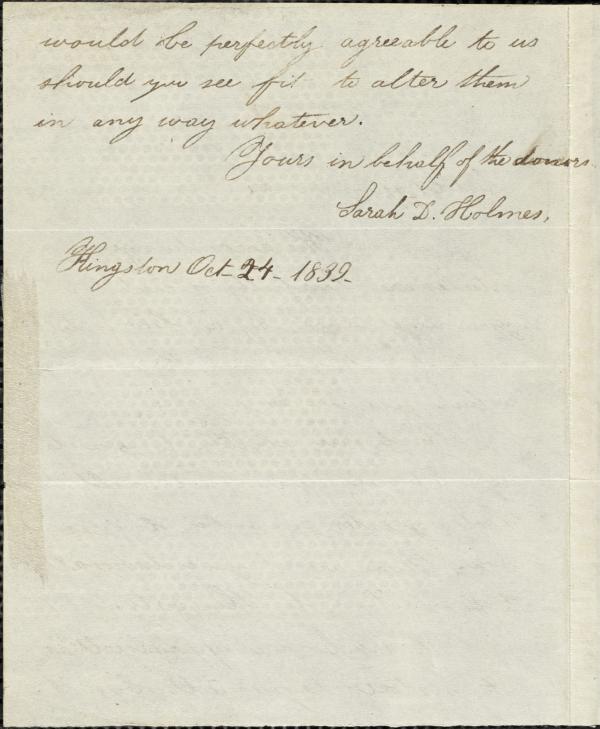 would be perfectly agreeable to us
should you see fit to alter them
in any way whatever.
Yours in behalf of the donors
Sarah D. Holmes,
Kingston Oct- 24- 1839-